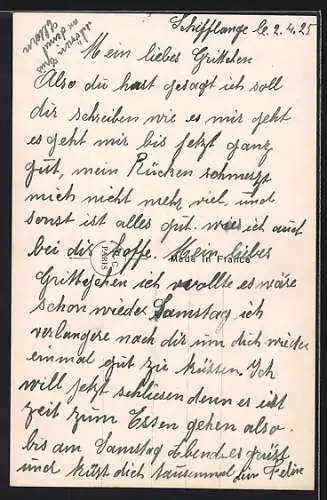 Schifflange le. 2.4.25
Mein liebes Grittchen
Also du hast gesagt ich soll
dir schreiben wie es mir geht
es geht mir bis jetzt ganz
gut, mein Rücken schmerzt
mich nicht mehr viel, und
sonst ist alles gut. wie ich auch
bei dir hoffe. Mein liebes
PARIS
Made in France
Grittchen ich wollte es wäre
schon wieder Samstag ich
verlangere nach dir um dich wieder
einmal gut zie küssen. Ich
will jetzt schliesen denn es ist
zeit zum Essen gehen also
bis am Samstag Abend es grüst
und küst dich tausenmal dein